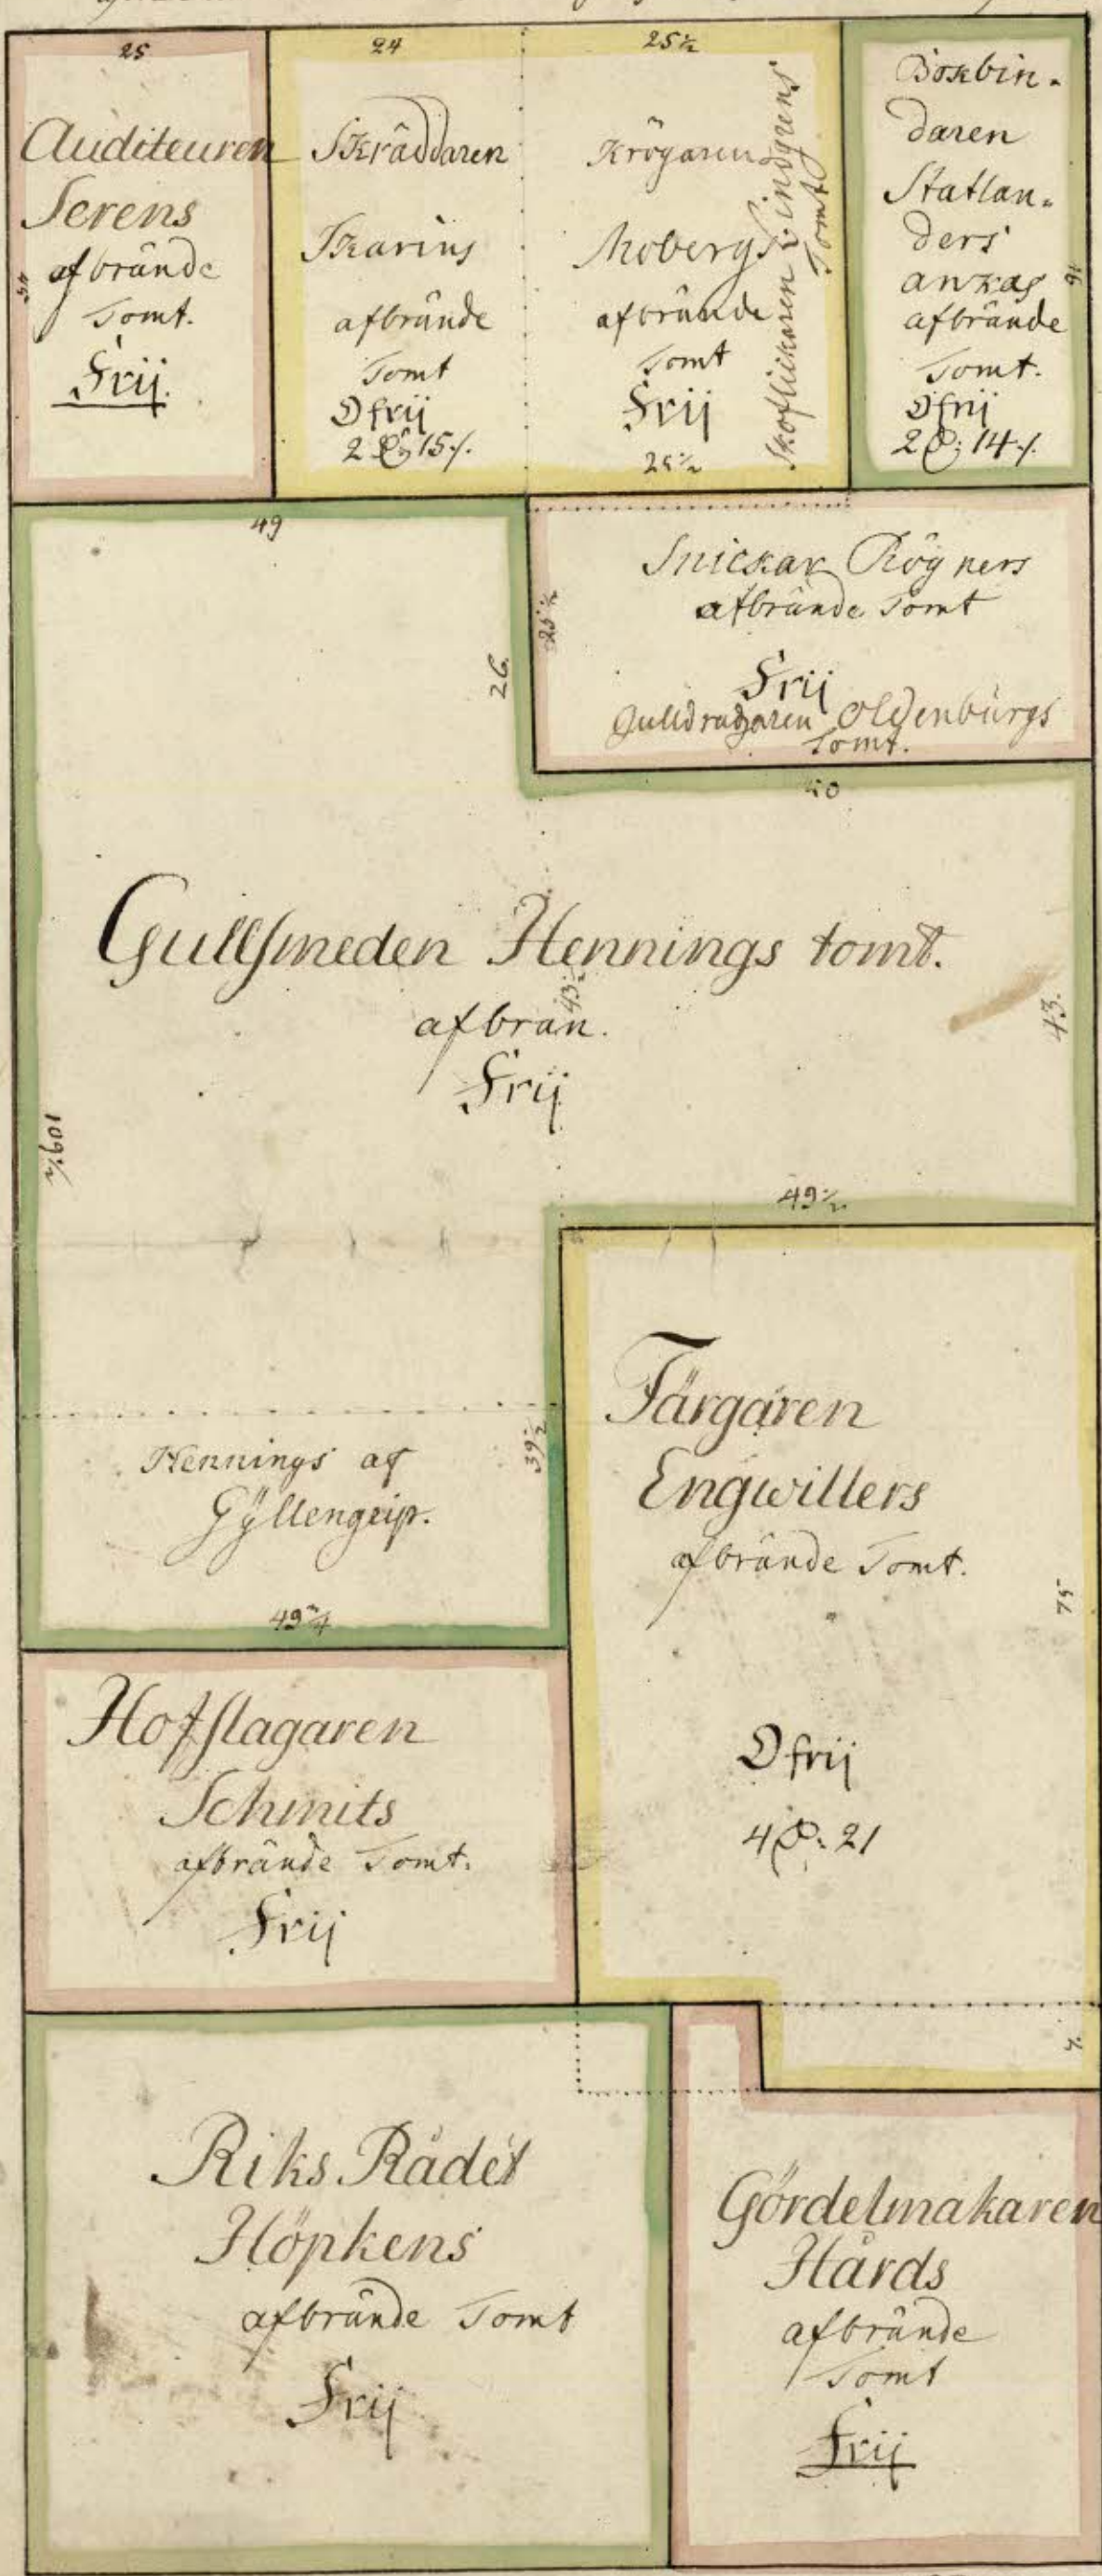 25
Auditeuren
Serens
afbrände
Tomt.
Frij.
24
Skräddaren
Skarins
afbrände
Tomt
Ofrij
2 15./.
25½
Krögaren
Mobergs
afbrände
Tomt
Frij
25½
Skoflickaren Lindgrens
Tomt
Bokbin-
daren
Statlan-
ders
ankas
afbrände
Tomt.
Ofrij
2 14./.
49
26
25½
Snickar Rögners
afbrände Tomt
Frij
Gulldragaren Oldenburgs
Tomt.
50
Gullsmeden Hennings tomt.
43½
afbrän.
Frij
43.
109½
49½
Hennings af
Gyllengrip.
39½
49¾
Färgaren
Engwillers
afbrände Tomt.
75
Ofrij
4 21
Hofslagaren
Schmits
afbrände Tomt.
Frij
Riks Rådet
Höpkens
afbrände Tomt
Frij
Gördelmakaren
Hårds
afbrände
Tomt
Frij